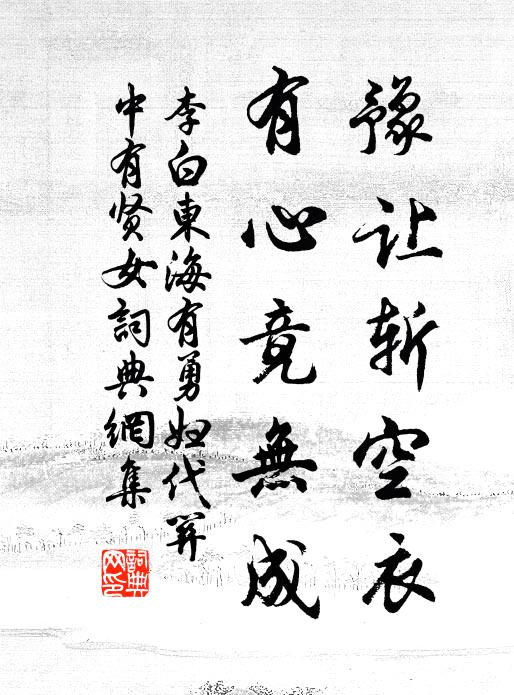 豫让斩空衣
有心竟無成
李白東海有勇妇代關
中有贤女詞典網集
詞典網印